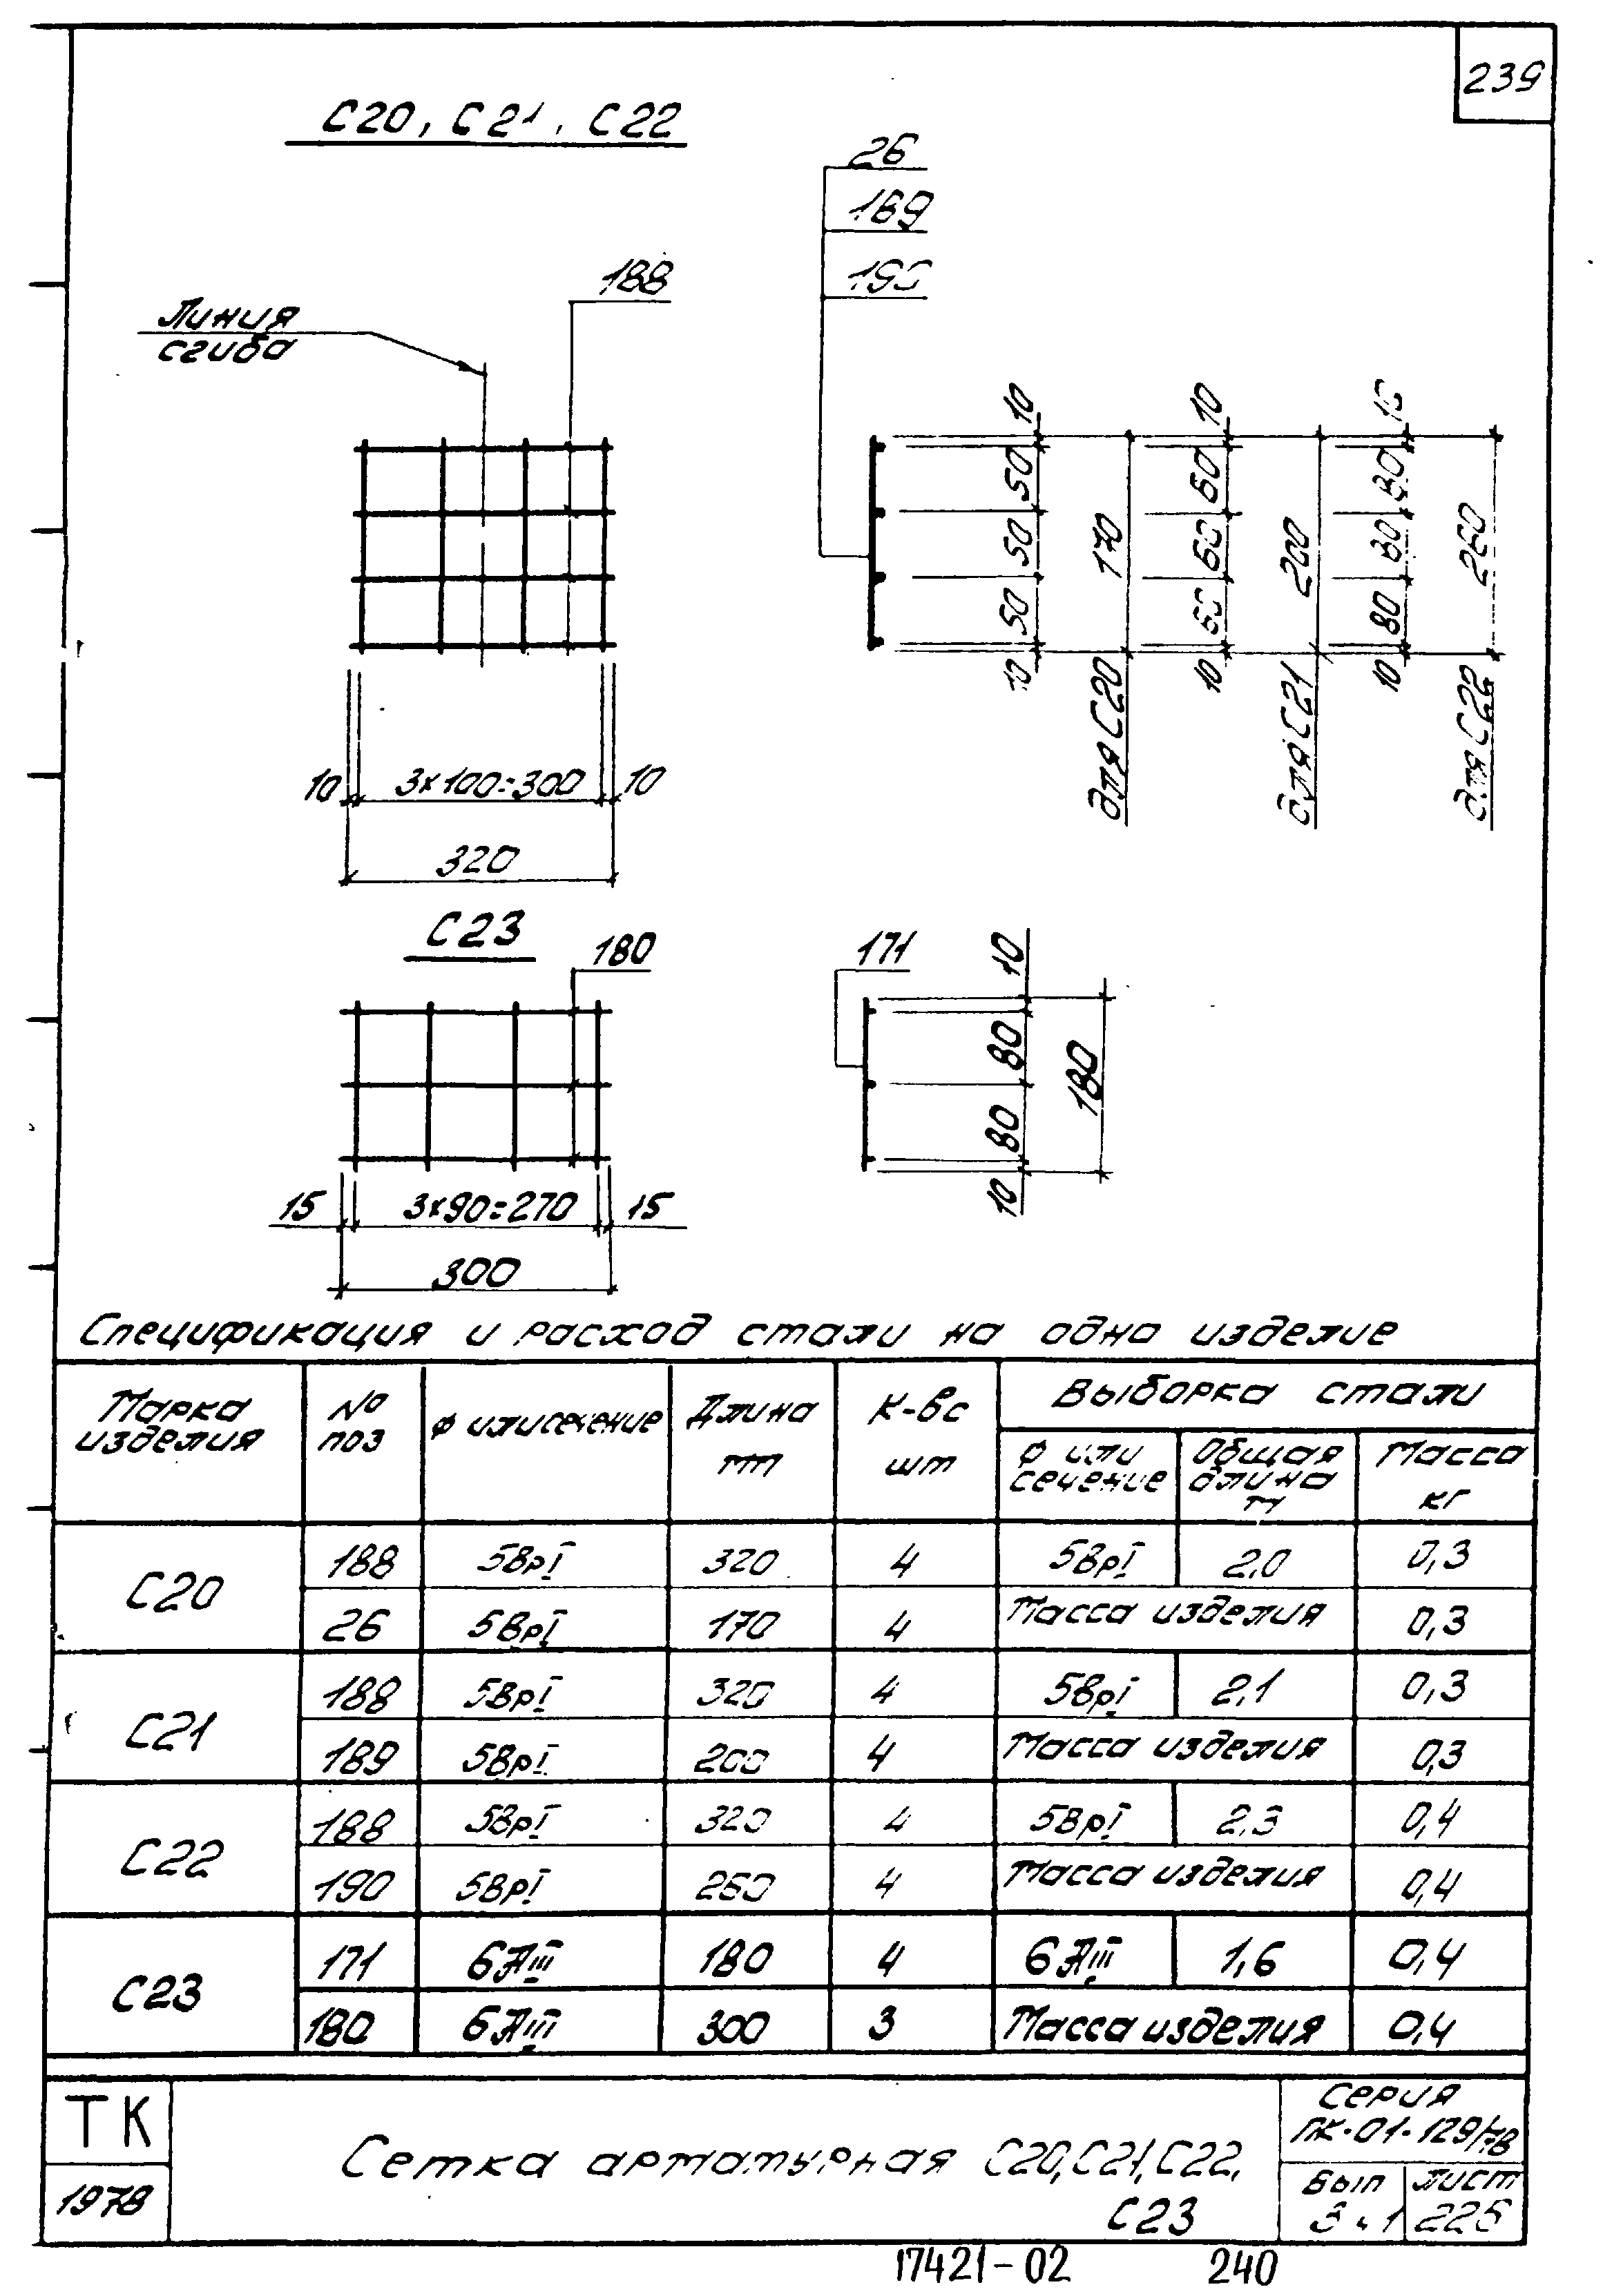 239
С20, С21, С22
26
189
190
188
Линия
сгиба
10 50 50 50 10
170
для С20
10 60 60 60 10
200
для С21
10 80 80 80 10
260
для С22
10 3х100=300 10
320
С23
180
171
10 80 80 10
180
15 3х90=270 15
300
Спецификация и расход стали на одно изделие
Марка изделия № поз ф или сечение Длина мм К-во шт Выборка стали
ф или сечение Общая длина м Масса кг
С20 188 5ВрI 320 4 5ВрI 2,0 0,3
26 5ВрI 170 4 Масса изделия 0,3
С21 188 5ВрI 320 4 5ВрI 2,1 0,3
189 5ВрI 200 4 Масса изделия 0,3
С22 188 5ВрI 320 4 5ВрI 2,3 0,4
190 5ВрI 260 4 Масса изделия 0,4
С23 171 6АIII 180 4 6АIII 1,6 0,4
180 6АIII 300 3 Масса изделия 0,4
ТК
1978
Сетка арматурная С20, С21, С22,
С23
Серия
ПК-01-129/78
Вып Лист
3 ч 1
17421-02 240